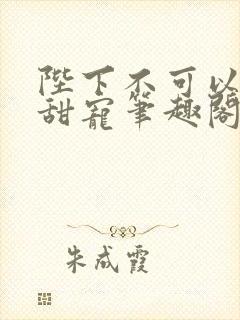 陛下不可以
甜宠笔趣阁
朱成霞